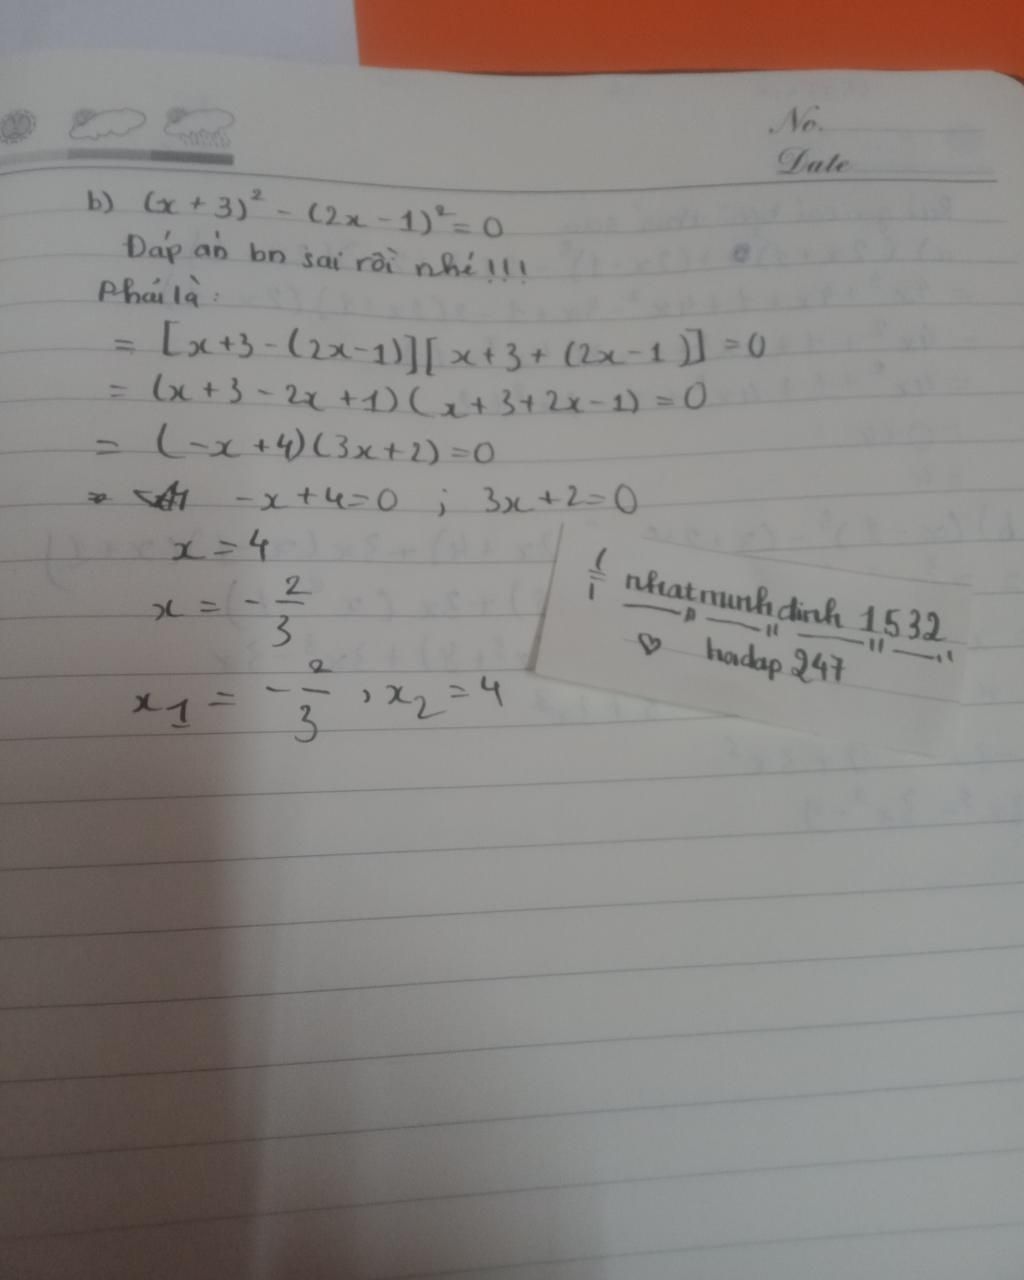 No.
Date
b) (x + 3)² - (2x - 1)² = 0
Đáp án bn sai rồi nhé!!!
Phải là:
= [x+3-(2x-1)][x+3+(2x-1)] = 0
= (x+3-2x+1)(x+3+2x-1) = 0
= (-x+4)(3x+2) = 0
-x+4=0 ; 3x+2=0
x = 4
x = -2/3
x₁ = -2/3, x₂ = 4
nhatminhdinh 1532
♡ hoidap 247